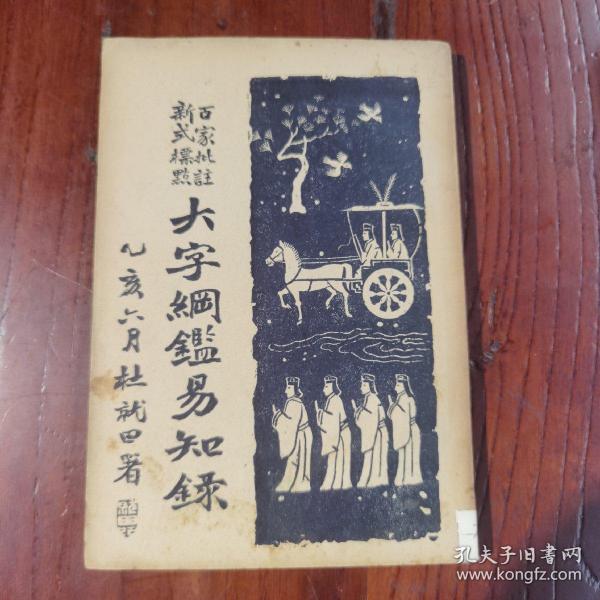 百家批註
新式標點
大字綱鑑易知錄
乙亥六月杜就田署
孔夫子旧書网
www.kongfz.com